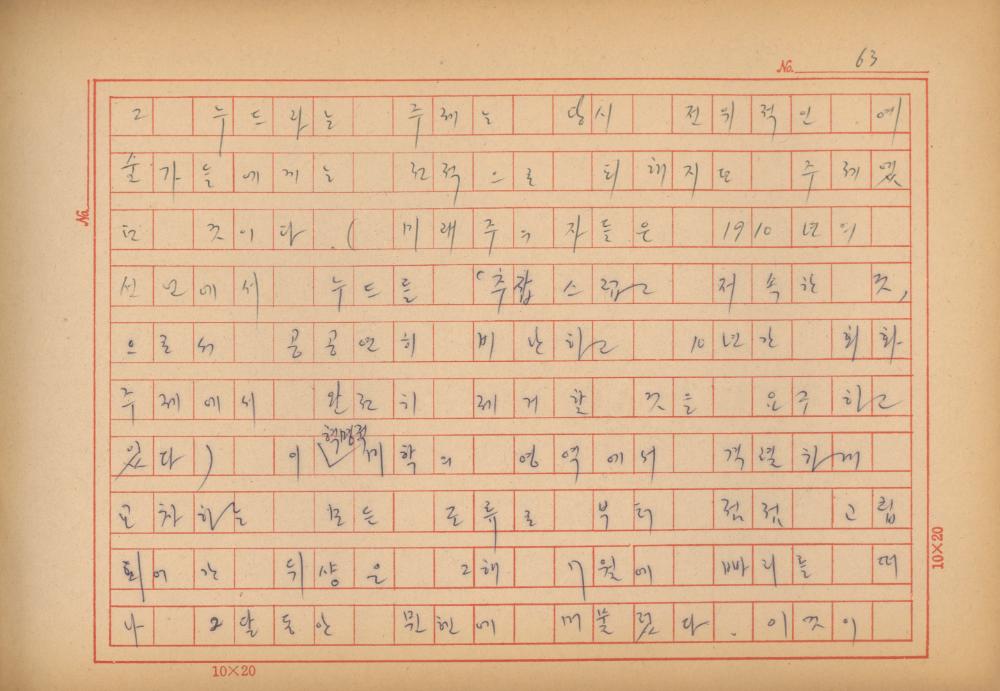 No. 63
그 누드라는 주제는 당시 전위적인 예
술가들에게는 전적으로 퇴해지던 주제였
던 것이다. (미래주의자들은 1910년의
선언에서 누드를 '추잡스럽고 저속한 것,
으로서 공공연히 비난하고 10년간 회화
주제에서 완전히 제거할 것을 요구하고
있다) 이 혁명적 미학의 영역에서 격렬하게
교차하는 모든 조류로 부터 점점 고립
되어 간 뒤샹은 그해 7월에 빠리를 떠
나 2달 동안 뮌헨에 머물렀다. 이것이
No.
10×20
10×20